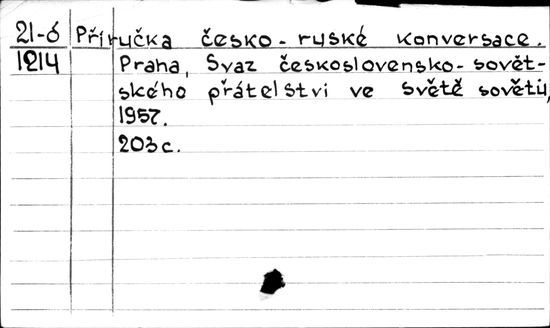 21-6 Příručka česko-ruské konversace.
1214 Praha, Svaz československo-sovět-
ského přátelstvi ve Světě sovětů,
1957.
203 c.